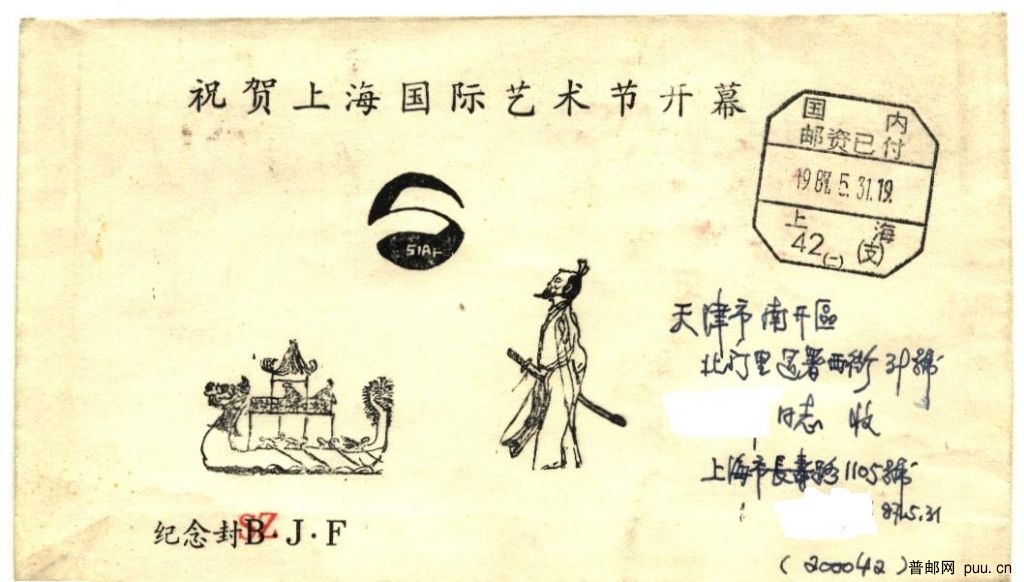 祝贺上海国际艺术节开幕
国内
邮资已付
1987.5.31.19
上海
42(一)(支)
SIAF
天津市南开區
北门里運署西街39號
同志 收
上海市長壽路1105號
87.5.31
(200042)
纪念封B·J·F
SZ
普邮网 puu.cn